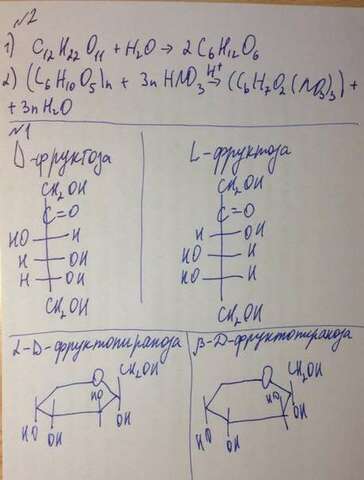 №2
1) C₁₂H₂₂O₁₁ + H₂O → 2C₆H₁₂O₆
2) (C₆H₁₀O₅)n + 3n HNO₃ H⁺→ (C₆H₇O₂(NO₃)₃) +
+ 3n H₂O
№1
D-фруктоза
CH₂OH
C=O
HO H
H OH
H OH
CH₂OH
L-фруктоза
CH₂OH
C=O
H OH
HO H
HO H
CH₂OH
α-D-фруктопираноза
O
CH₂OH
HO
HO OH OH
β-D-фруктопираноза
O
CH₂OH
HO
HO OH OH